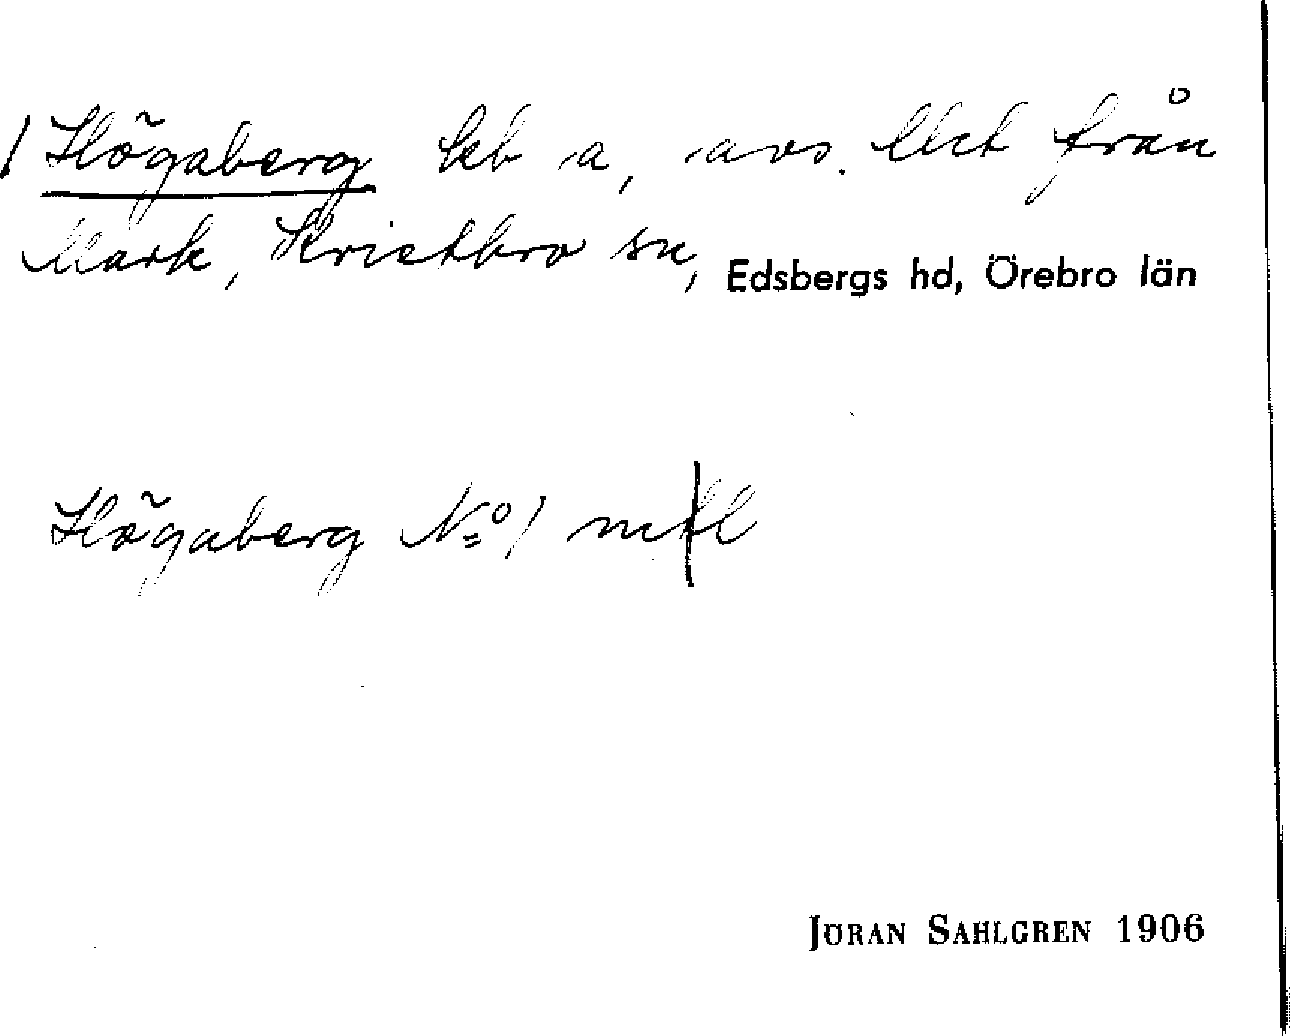 / Högaberg lht a, avs. lht från
Mark, Kvistbro sn, Edsbergs hd, Örebro län
Högaberg No 1 mtl
JÖRAN SAHLGREN 1906